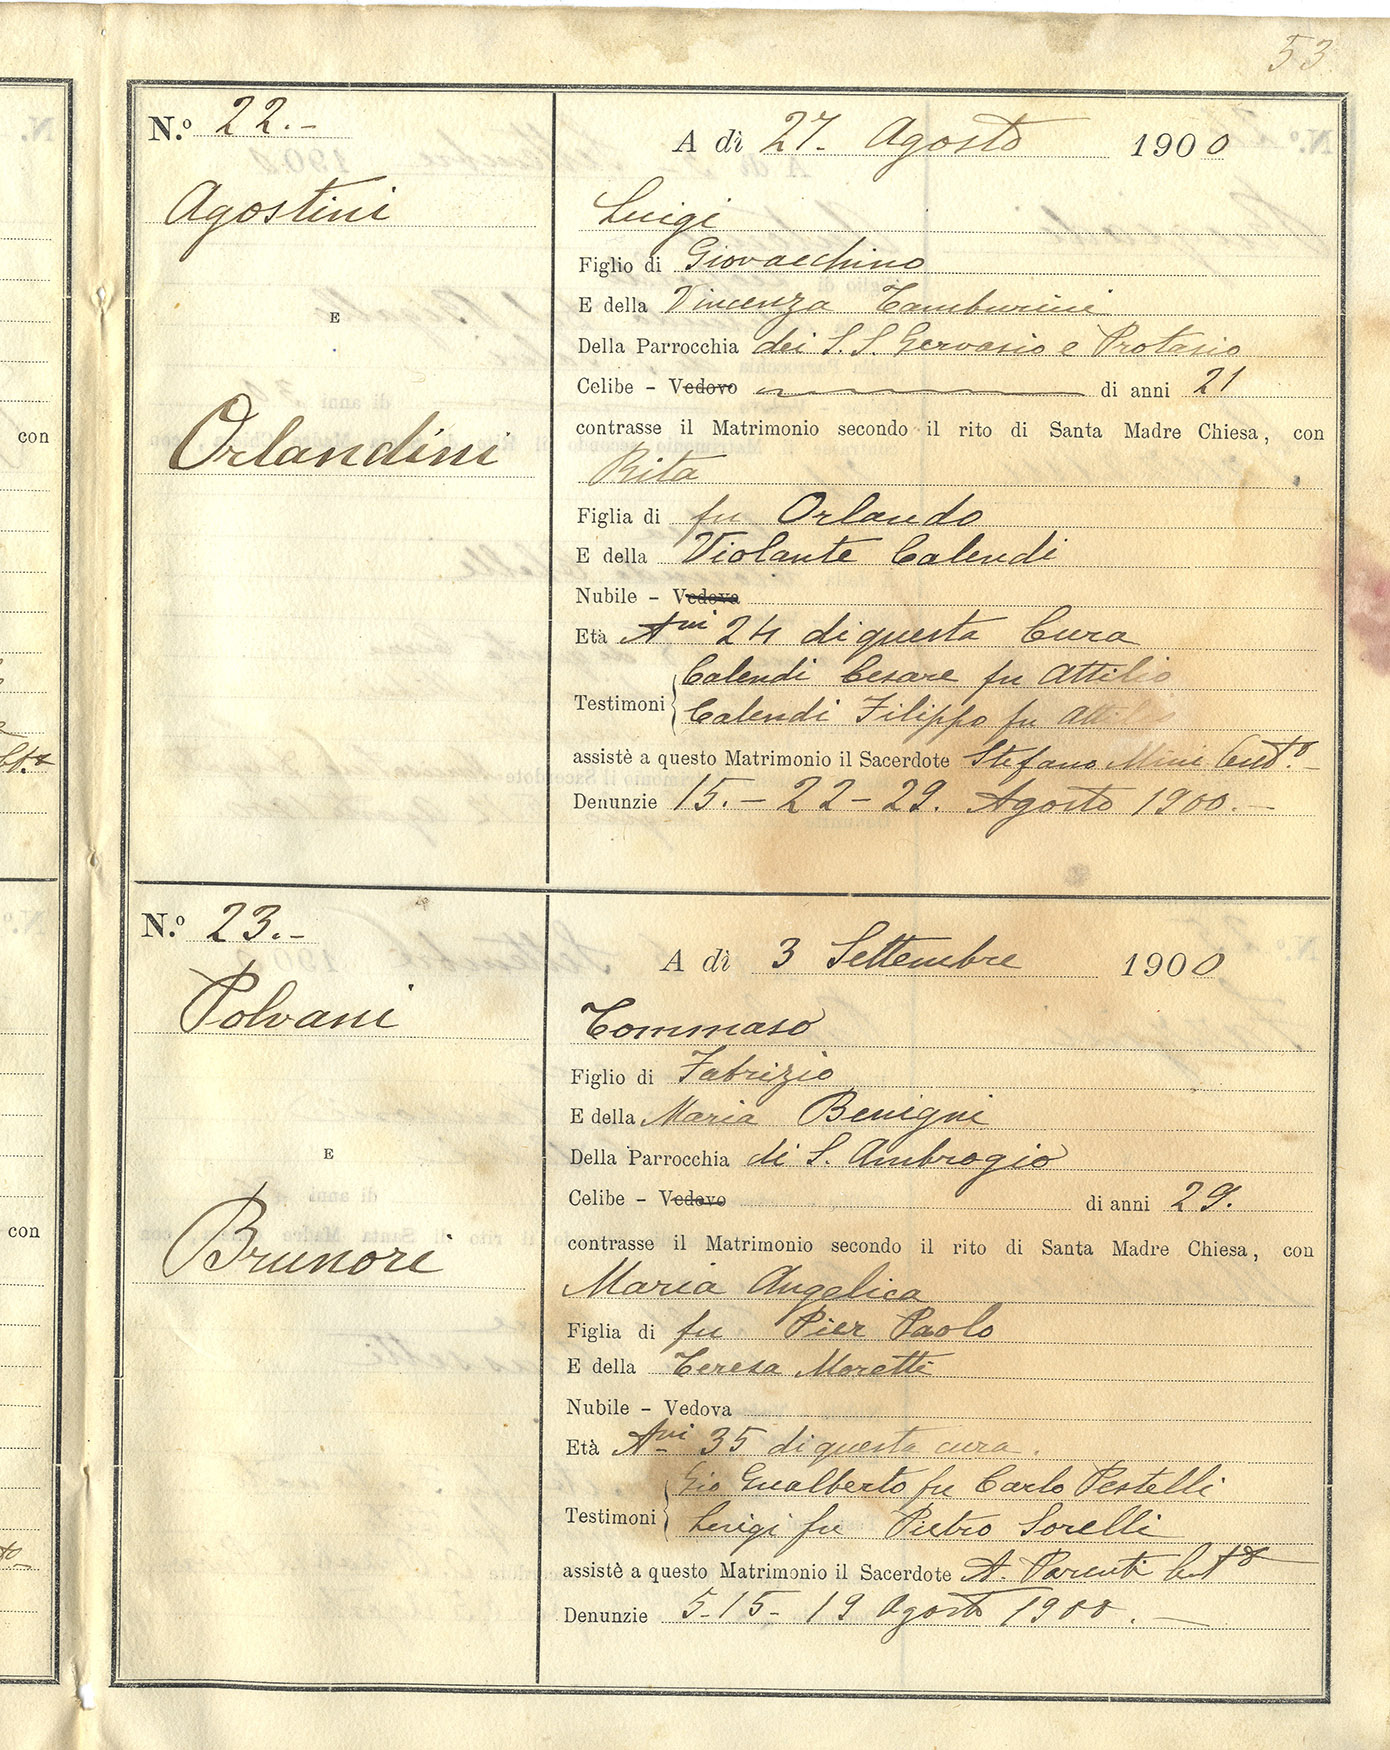 53
N.º 22.-
A dì 27. Agosto 1900
Agostini
E
Orlandini
Luigi
Figlio di Giovacchino
E della Vincenza Tamburini
Della Parrocchia dei S.S. Gervasio e Protasio
Celibe - Vedovo di anni 21
contrasse il Matrimonio secondo il rito di Santa Madre Chiesa, con
Rita
Figlia di fu Orlando
E della Violante Calendi
Nubile - Vedova
Età Anni 24 di questa Cura
Testimoni
Calendi Cesare fu Attilio
Calendi Filippo fu Attilio
assistè a questo Matrimonio il Sacerdote Stefano Mini
Denunzie 15. - 22 - 29. Agosto 1900. -
N.º 23.-
A dì 3 Settembre 1900
Polvani
E
Brunori
Tommaso
Figlio di Fabrizio
E della Maria Benigni
Della Parrocchia di S. Ambrogio
Celibe - Vedovo di anni 29.
contrasse il Matrimonio secondo il rito di Santa Madre Chiesa, con
Maria Angelica
Figlia di fu Pier Paolo
E della Teresa Moretti
Nubile - Vedova
Età Anni 35 di questa cura.
Testimoni
Gio Gualberto fu Carlo Pestelli
Luigi fu Pietro Sorelli
assistè a questo Matrimonio il Sacerdote A. Parenti
Denunzie 5-15- 19 Agosto 1900. -
con
con